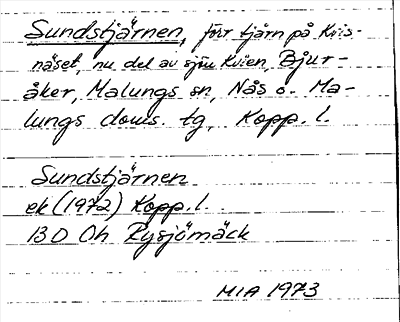 Sundstjärnen, förr tjärn på Kvis-
näset, nu del av sjön Kvien, Bjur-
åker, Malungs sn, Nås o. Ma-
lungs doms. tg, Kopp. l.
Sundstjärnen
ek (1972) Kopp. l.
13 D Oh Rysjömäck
MIA 1973